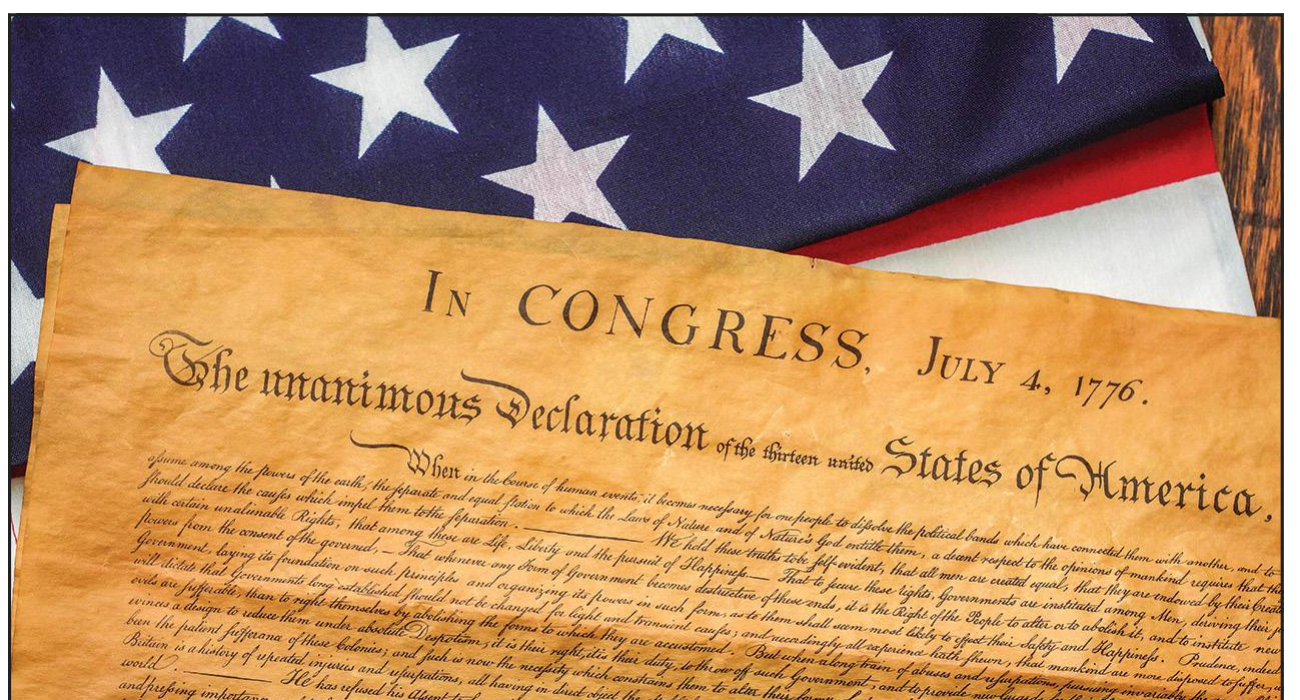 IN CONGRESS, JULY 4, 1776.
The unanimous Declaration of the thirteen united States of America,
When in the Course of human events, it becomes necessary for one people to dissolve the political bands which have connected them with another, and to
assume among the powers of the earth, the separate and equal station to which the Laws of Nature and of Nature's God entitle them, a decent respect to the opinions of mankind requires that
should declare the causes which impel them to the separation. ——— We hold these truths to be self-evident, that all men are created equal, that they are endowed by their
with certain unalienable Rights, that among these are Life, Liberty and the pursuit of Happiness.— That to secure these rights, Governments are instituted among Men, deriving their
powers from the consent of the governed, — That whenever any Form of Government becomes destructive of these ends, it is the Right of the People to alter or to abolish it, and to institute new
Government, laying its foundation on such principles and organizing its powers in such form, as to them shall seem most likely to effect their Safety and Happiness. Prudence, indeed
will dictate that Governments long established should not be changed for light and transient causes; and accordingly all experience hath shewn, that mankind are more disposed to suffer,
evils are sufferable, than to right themselves by abolishing the forms to which they are accustomed. But when a long train of abuses and usurpations, pursuing invariably
evinces a design to reduce them under absolute Despotism, it is their right, it is their duty, to throw off such Government, and to provide new Guards
been the patient sufferance of these Colonies; and such is now the necessity which constrains them to alter their former
Britain is a history of repeated injuries and usurpations, all having in direct object the
world. ——— He has refused his Assent to
and pressing importance